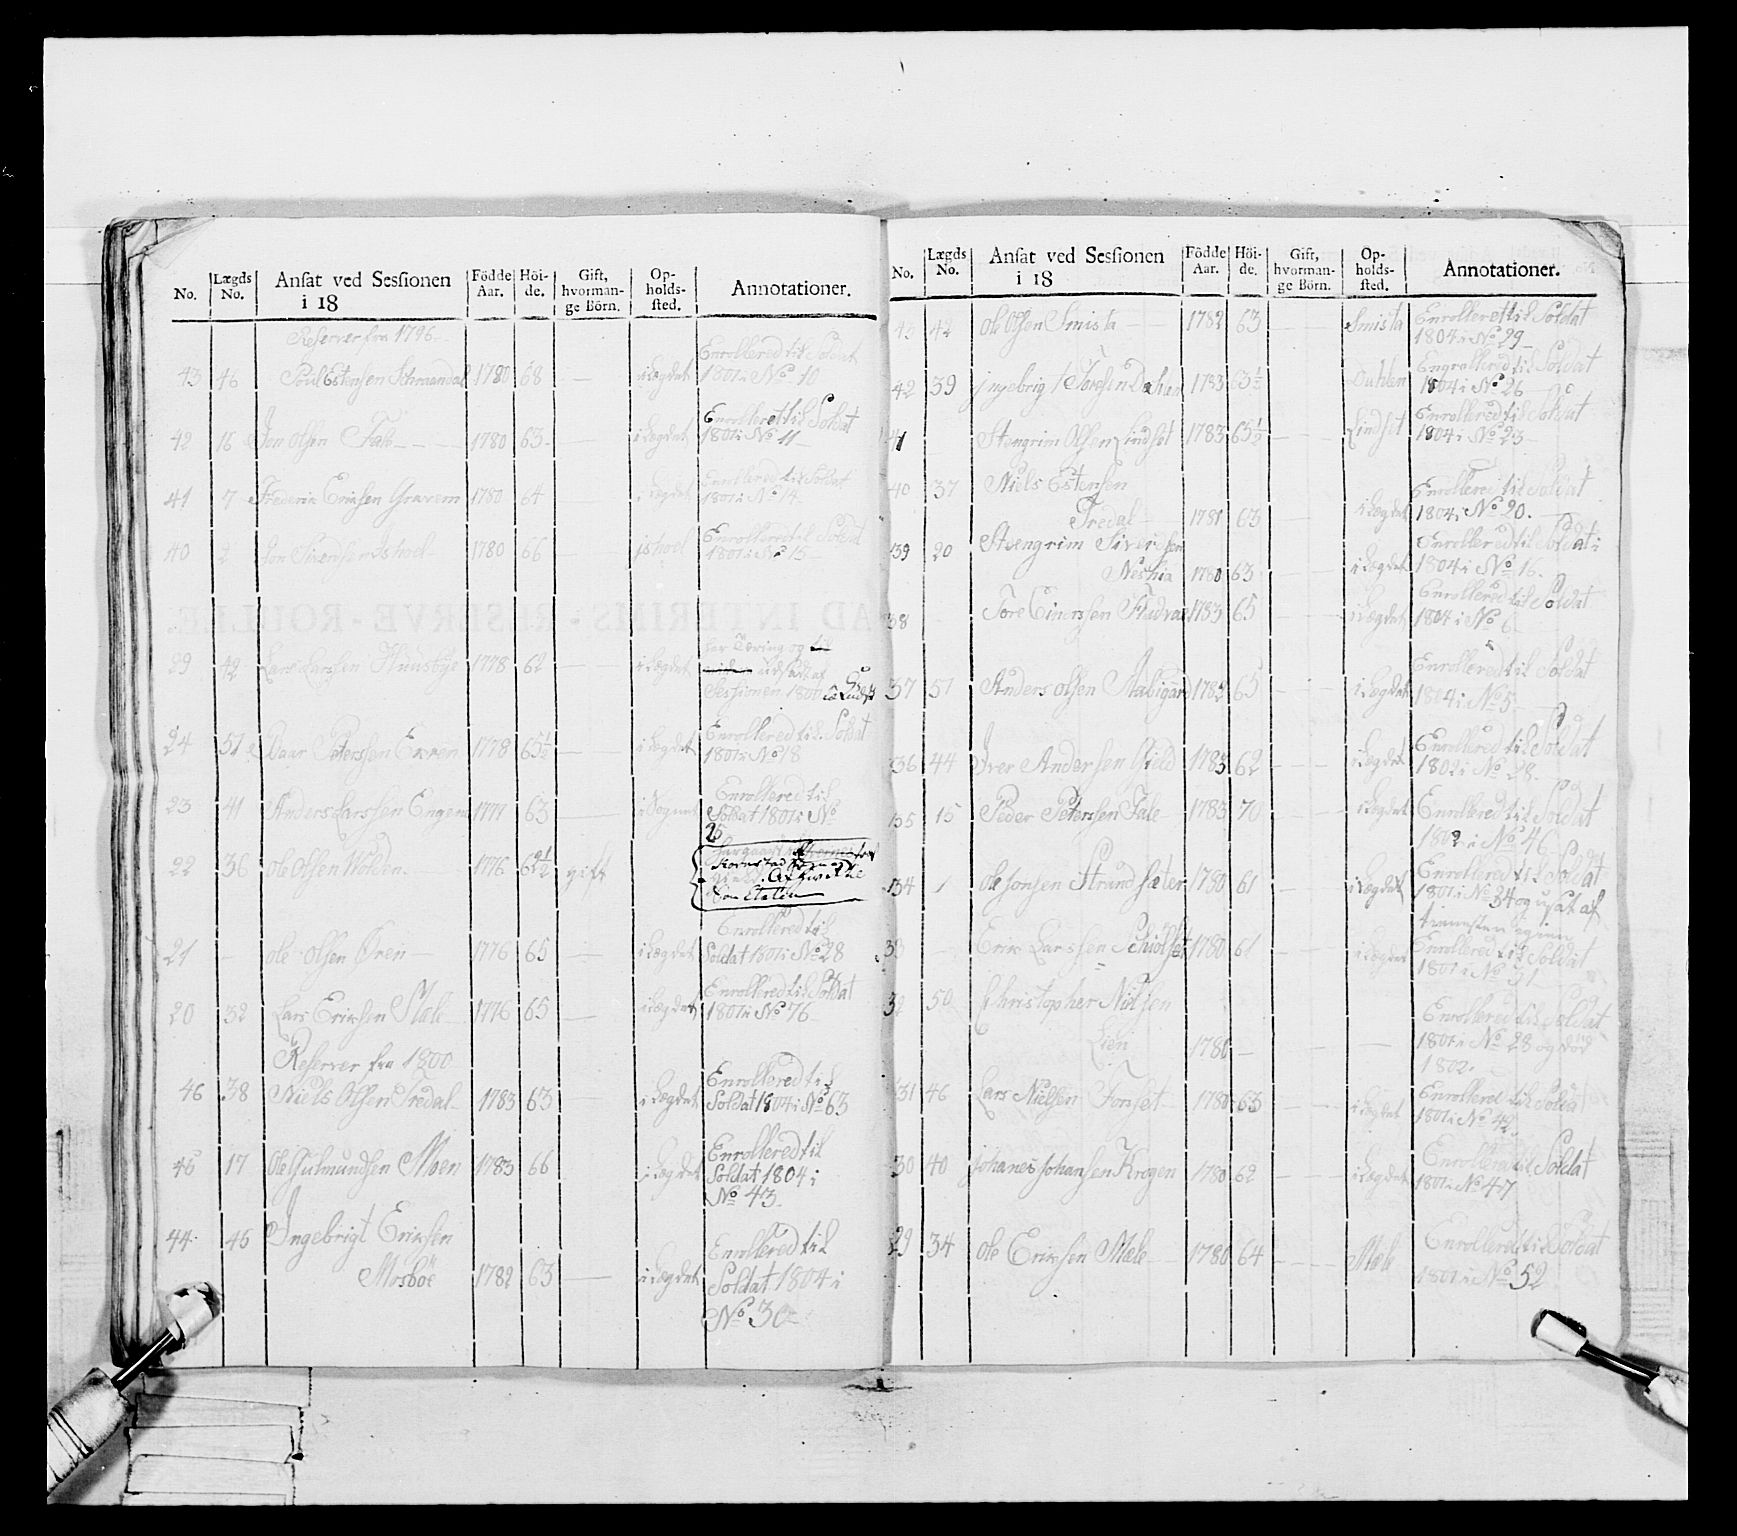 No. Lægds No. Ansat ved Sessionen i 18 Födde Aar. Höi-de. Gift, hvorman-ge Börn. Op-holds-sted. Annotationer.
Reserver fra 1796
43 46 Poul Estensen 1780 68 i Lægdet Enrollered til Soldat 1801 i No 10
42 16 Jon Olsen Fale 1780 63 i Lægdet Enrolleret til Soldat 1801 i No 11
41 7 Frederik Erichsen Gravem 1780 64 i Lægdet Enrollered til Soldat 1801 i No 14
40 2 Jon Siversen Ishoel 1780 66 ishoel Enrollered til Soldat 1801 i No 15
29 42 Lars Larsen Huusbye 1778 62 i Lægdet har Tæring og udsadt af Sessionen 1800
24 51 Baar Petersen 1778 65½ i Lægdet Enrollered til Soldat 1801 i No 18
23 41 Anders Larsen Engen 1777 63 i Sognet Enrollered til Soldat 1801 i No 25
22 36 Ole Olsen Wolden 1776 62½ gift
21 Ole Olsen Ören 1776 65 i Lægdet Enrollered til Soldat 1801 i No 28
20 32 Lars Eriksen Mæle 1776 65 i Lægdet Enrollered til Soldat 1801 i No 76
Reserver fra 1800
46 38 Niels Olsen Tredal 1783 63 i Lægdet Enrollered til Soldat 1804 i No 63
45 17 Ole Gulmundsen Moen 1783 66 i Lægdet Enrollered til Soldat 1804 i No 43
44 46 Ingebrigt Eriksen
Mosboe 1782 63 i Lægdet Enrollered til Soldat 1804 i No 30
No. Lægds No. Ansat ved Sessionen i 18 Födde Aar. Höi-de. Gift, hvorman-ge Börn. Op-holds-sted. Annotationer.
43 42 Ole Olsen Smista 1782 63 Smista Enrolleret til Soldat 1804 i No 29
42 39 Ingebrigt Toresen 1783 63½ Enrolleret til Soldat 1804 i No 26
41 Stengrim Olsen Lindset 1783 65½ Lindset Enrollered til Soldat 1804 i No 23
40 37 Niels Estensen
Tredal 1781 63 i Lægdet Enrollered til Soldat 1804 i No 20.
39 20 Steengrim Siversen
1780 63 i Lægdet Enrollered til Soldat i 1804 i No 16.
38 Tore Einersen 1783 65 i Lægdet Enrollered til Soldat 1804 i No 6
37 51 Anders Olsen 1782 65 i Lægdet Enrollered til Soldat 1804 i No 5
36 44 Iver Andersen Gield 1783 62 i Lægdet Enrollered til Soldat 1802 i No 28.
35 15 Peder Petersen Fale 1783 70 i Lægdet Enrollered til Soldat 1802 i No 46
34 1 Ole Jonsen Strandsæter 1780 61 i Lægdet Enrollered til Soldat 1801 i No 34 og usat af tienesten igien
33 Erik Larssen 1780 61 i Lægdet Enrollered til Soldat 1801 i No 31
32 50 Christopher Nilsen
Lien 1780 Enrollered til Soldat 1801 i No 28 og död 1802.
31 46 Lars Nielsen Fonset 1780 63 i Lægdet Enrolered til Soldat 1801 i No 42.
30 40 Johanes Johansen Krogen 1780 62 i Lægdet Enrollered til Soldat 1801 i No 47
29 34 Ole Eriksen Mæle 1780 64 Mæle Enrollered til Soldat 1801 i No 52